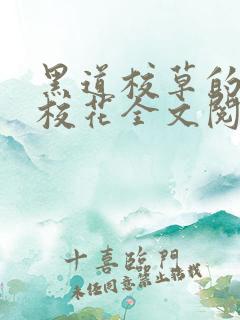 黑道校草的
校花全文阅
十喜臨門
未经同意禁止转载